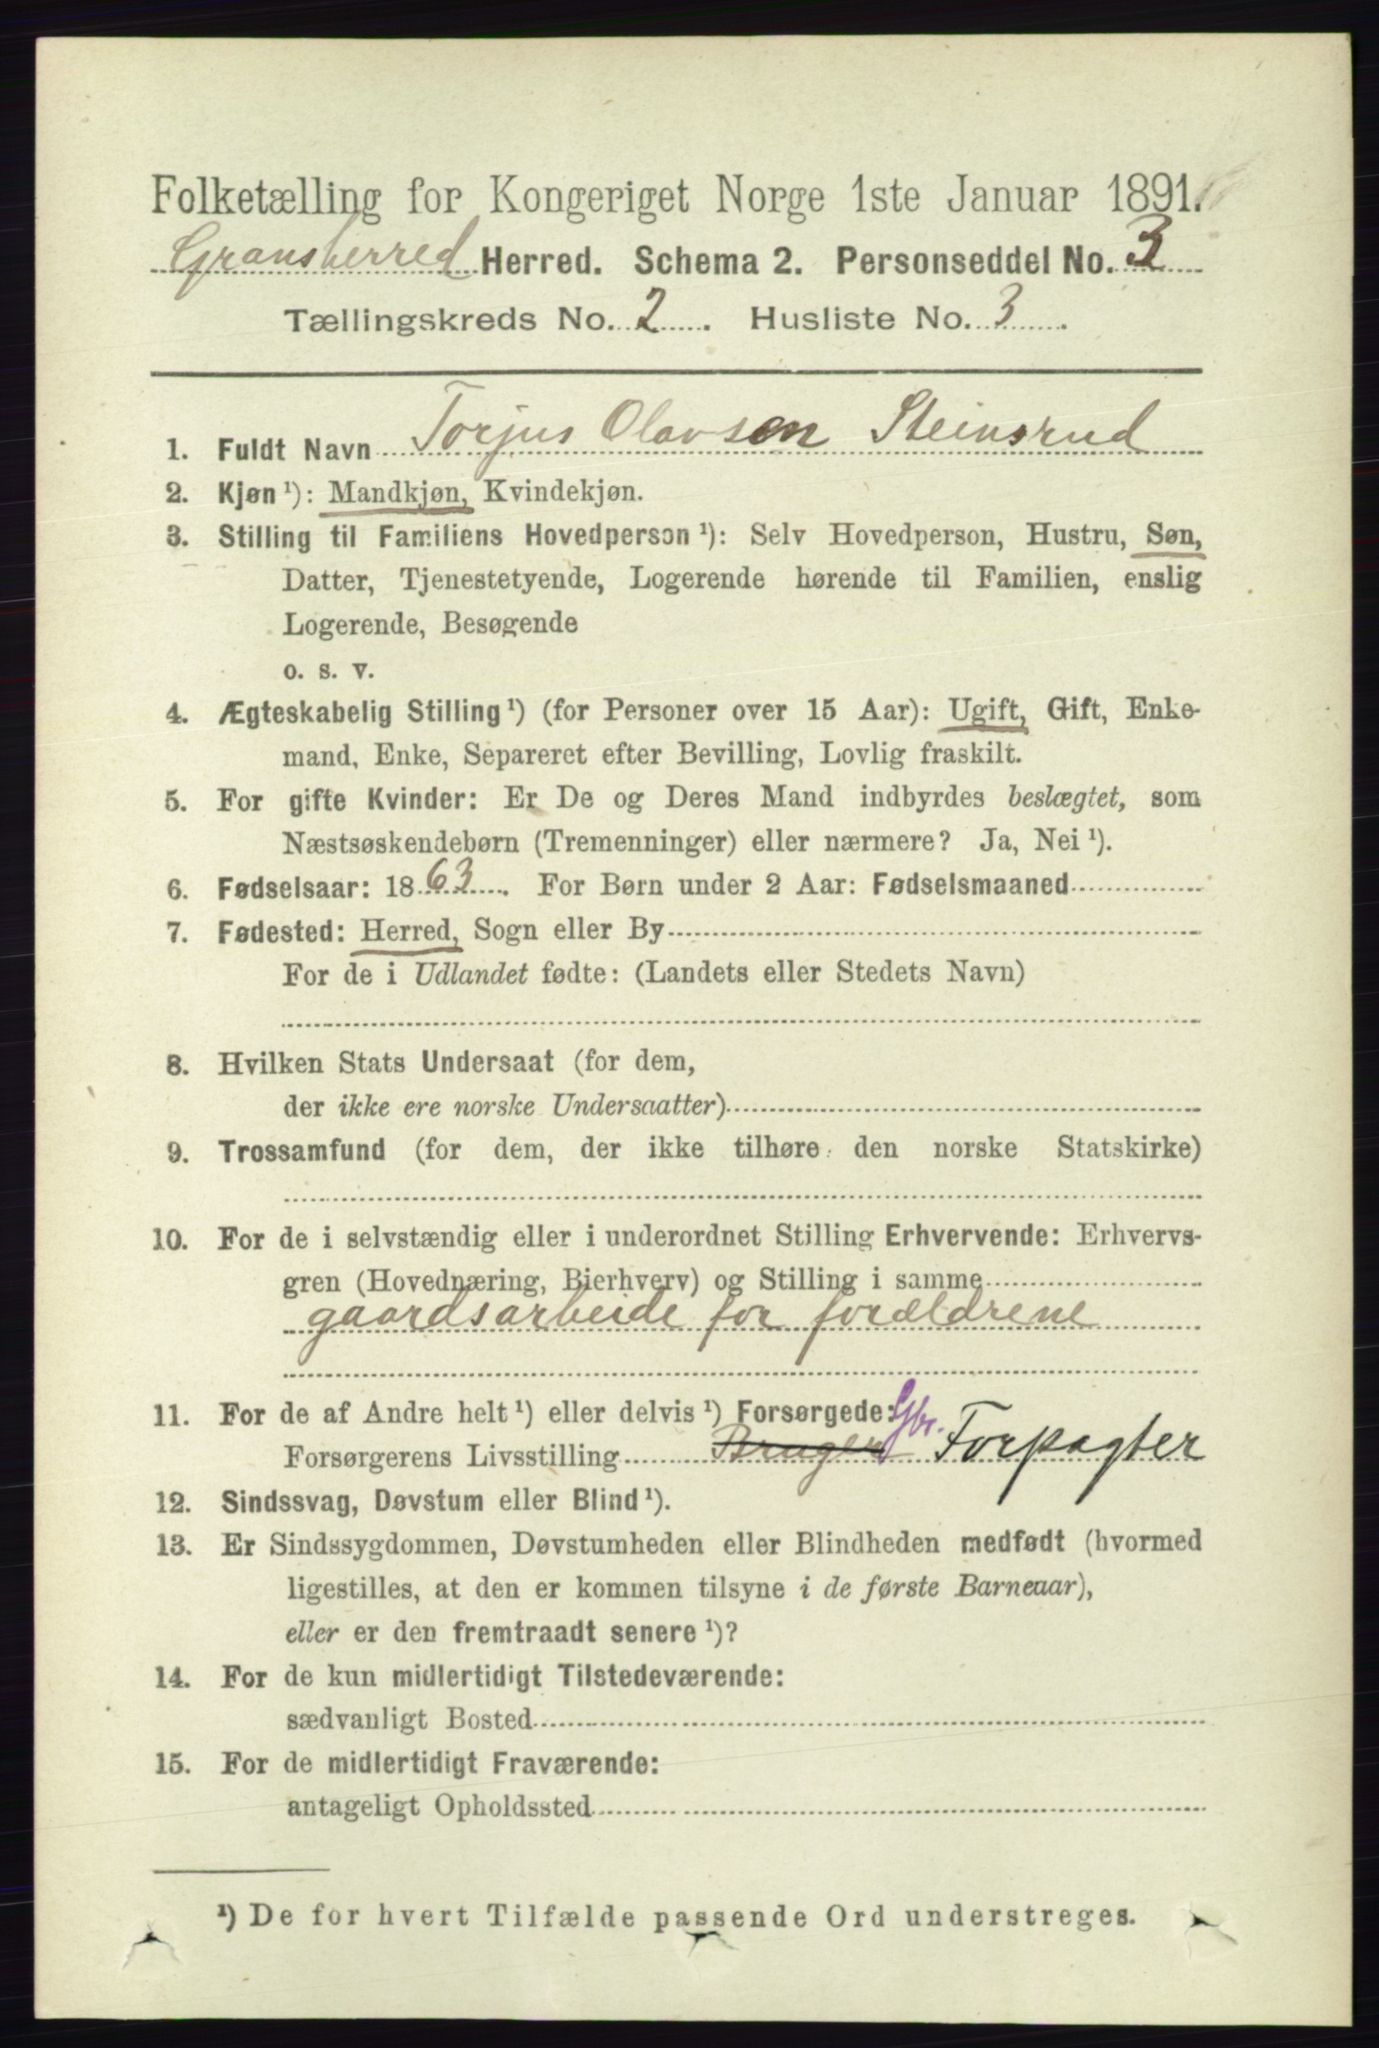 Folketælling for Kongeriget Norge 1ste Januar 1891.
Gransherred Herred. Schema 2. Personseddel No. 3
Tællingskreds No. 2. Husliste No. 3.
1. Fuldt Navn Torjus Olavsen Steinsrud
2. Kjøn ¹): Mandkjøn, Kvindekjøn.
3. Stilling til Familiens Hovedperson ¹): Selv Hovedperson, Hustru, Søn,
Datter, Tjenestetyende, Logerende hørende til Familien, enslig
Logerende, Besøgende
o. s. v.
4. Ægteskabelig Stilling ¹) (for Personer over 15 Aar): Ugift, Gift, Enke-
mand, Enke, Separeret efter Bevilling, Lovlig fraskilt.
5. For gifte Kvinder: Er De og Deres Mand indbyrdes beslægtet, som
Næstsøskendebørn (Tremenninger) eller nærmere? Ja, Nei ¹).
6. Fødselsaar: 1863. For Børn under 2 Aar: Fødselsmaaned
7. Fødested: Herred, Sogn eller By
For de i Udlandet fødte: (Landets eller Stedets Navn)
8. Hvilken Stats Undersaat (for dem,
der ikke ere norske Undersaatter)
9. Trossamfund (for dem, der ikke tilhøre den norske Statskirke)
10. For de i selvstændig eller i underordnet Stilling Erhvervende: Erhvervs-
gren (Hovednæring, Bierhverv) og Stilling i samme
gaardsarbeide for forældrene
11. For de af Andre helt ¹) eller delvis ¹) Forsørgede:
Forsørgerens Livsstilling Bruger Gbr. Forpagter
12. Sindssvag, Døvstum eller Blind ¹).
13. Er Sindssygdommen, Døvstumheden eller Blindheden medfødt (hvormed
ligestilles, at den er kommen tilsyne i de første Barneaar),
eller er den fremtraadt senere ¹)?
14. For de kun midlertidigt Tilstedeværende:
sædvanligt Bosted
15. For de midlertidigt Fraværende:
antageligt Opholdssted
¹) De for hvert Tilfælde passende Ord understreges.